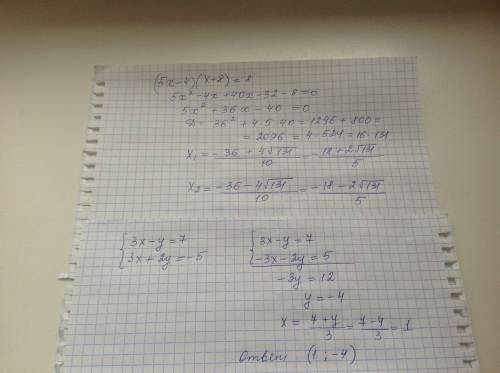 (5x-4)(x+8)=8
5x²-4x+40x-32-8=0
5x²+36x-40=0
D=36²+4·5·40=1296+800=
=2096=4·524=16·131
x₁=(-36+4√131)/10=(-18+2√131)/5
x₂=(-36-4√131)/10=(-18-2√131)/5
{3x-y=7
3x+2y=-5
{3x-y=7
-3x-2y=5
-3y=12
y=-4
x=(7+y)/3=(7-4)/3=1
Ответ (1;-4)